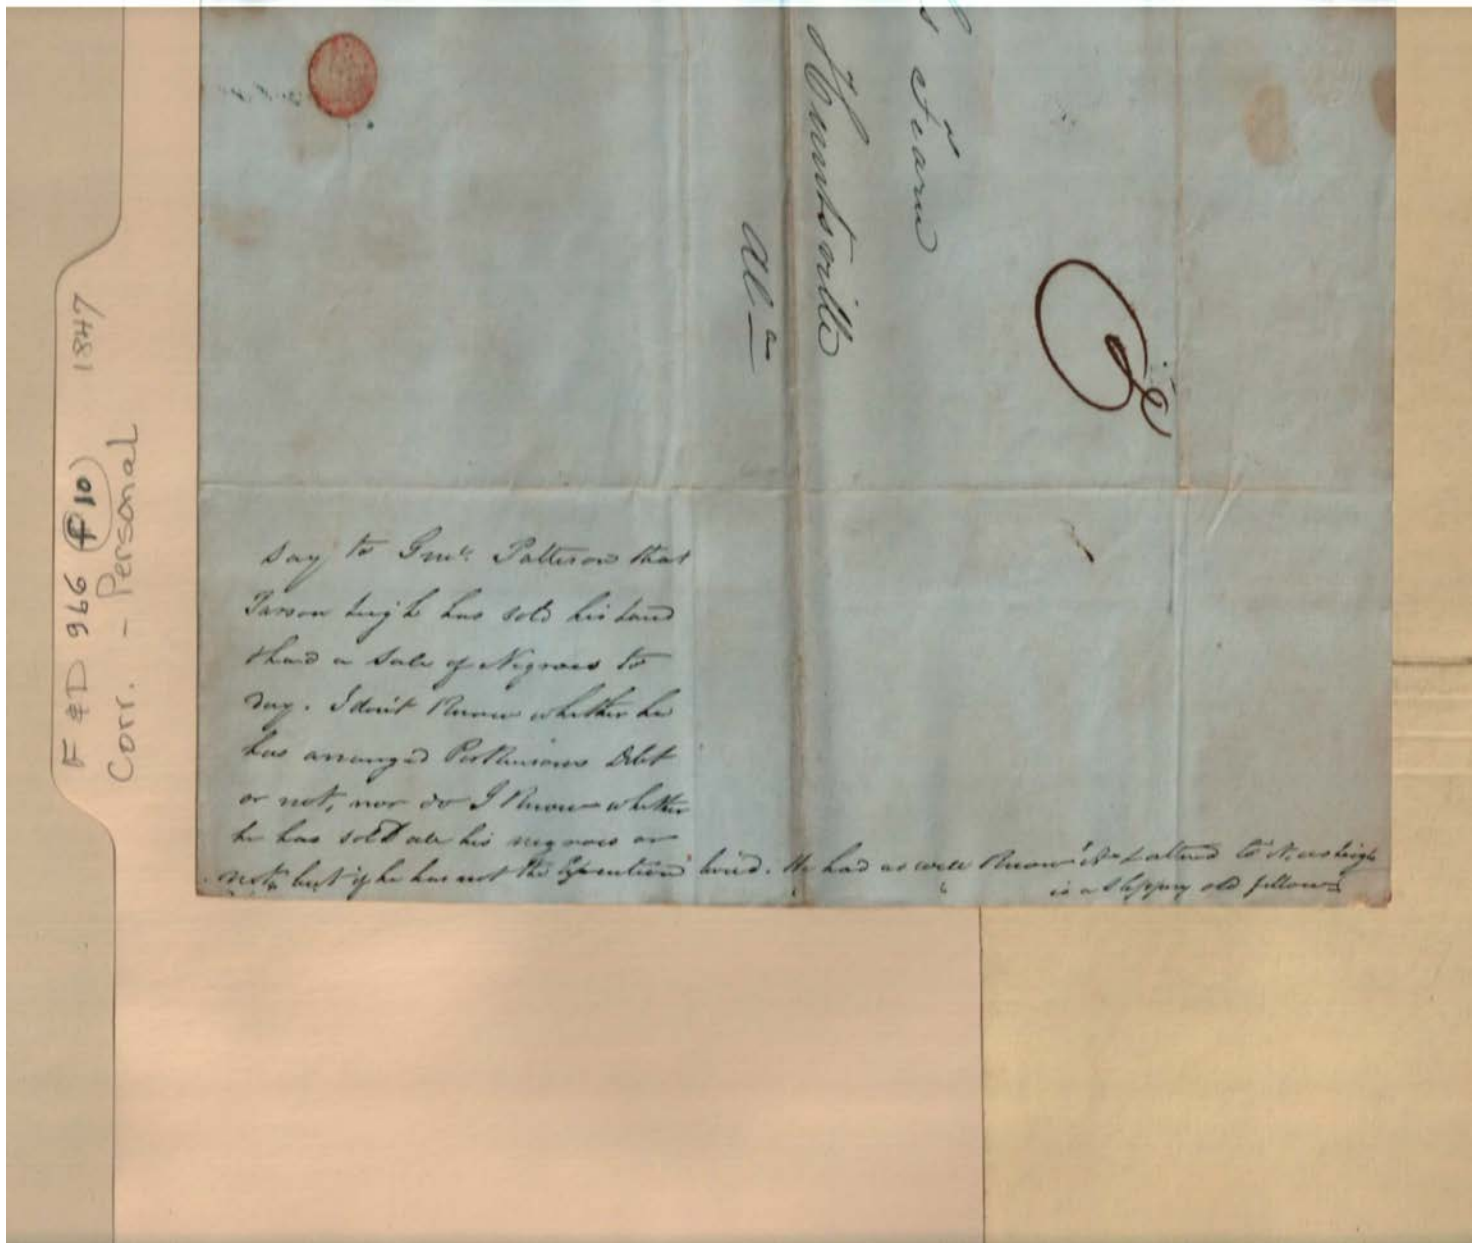 F & D 966 f 10 1847
Corr. - Personal
s Fearn
Huntsville
Ala
say to Genl. Patterson that
Parson Leigh has sold his land
& had a Sale of Negroes to
day. I don't Know whether he
has arranged Perkinsons Debt
or not, nor do I Know whether
he has sold all his negroes or
not, but if he has not the Execution . He had as well Know it & attend to it, as Leigh
is a slippery old fellow